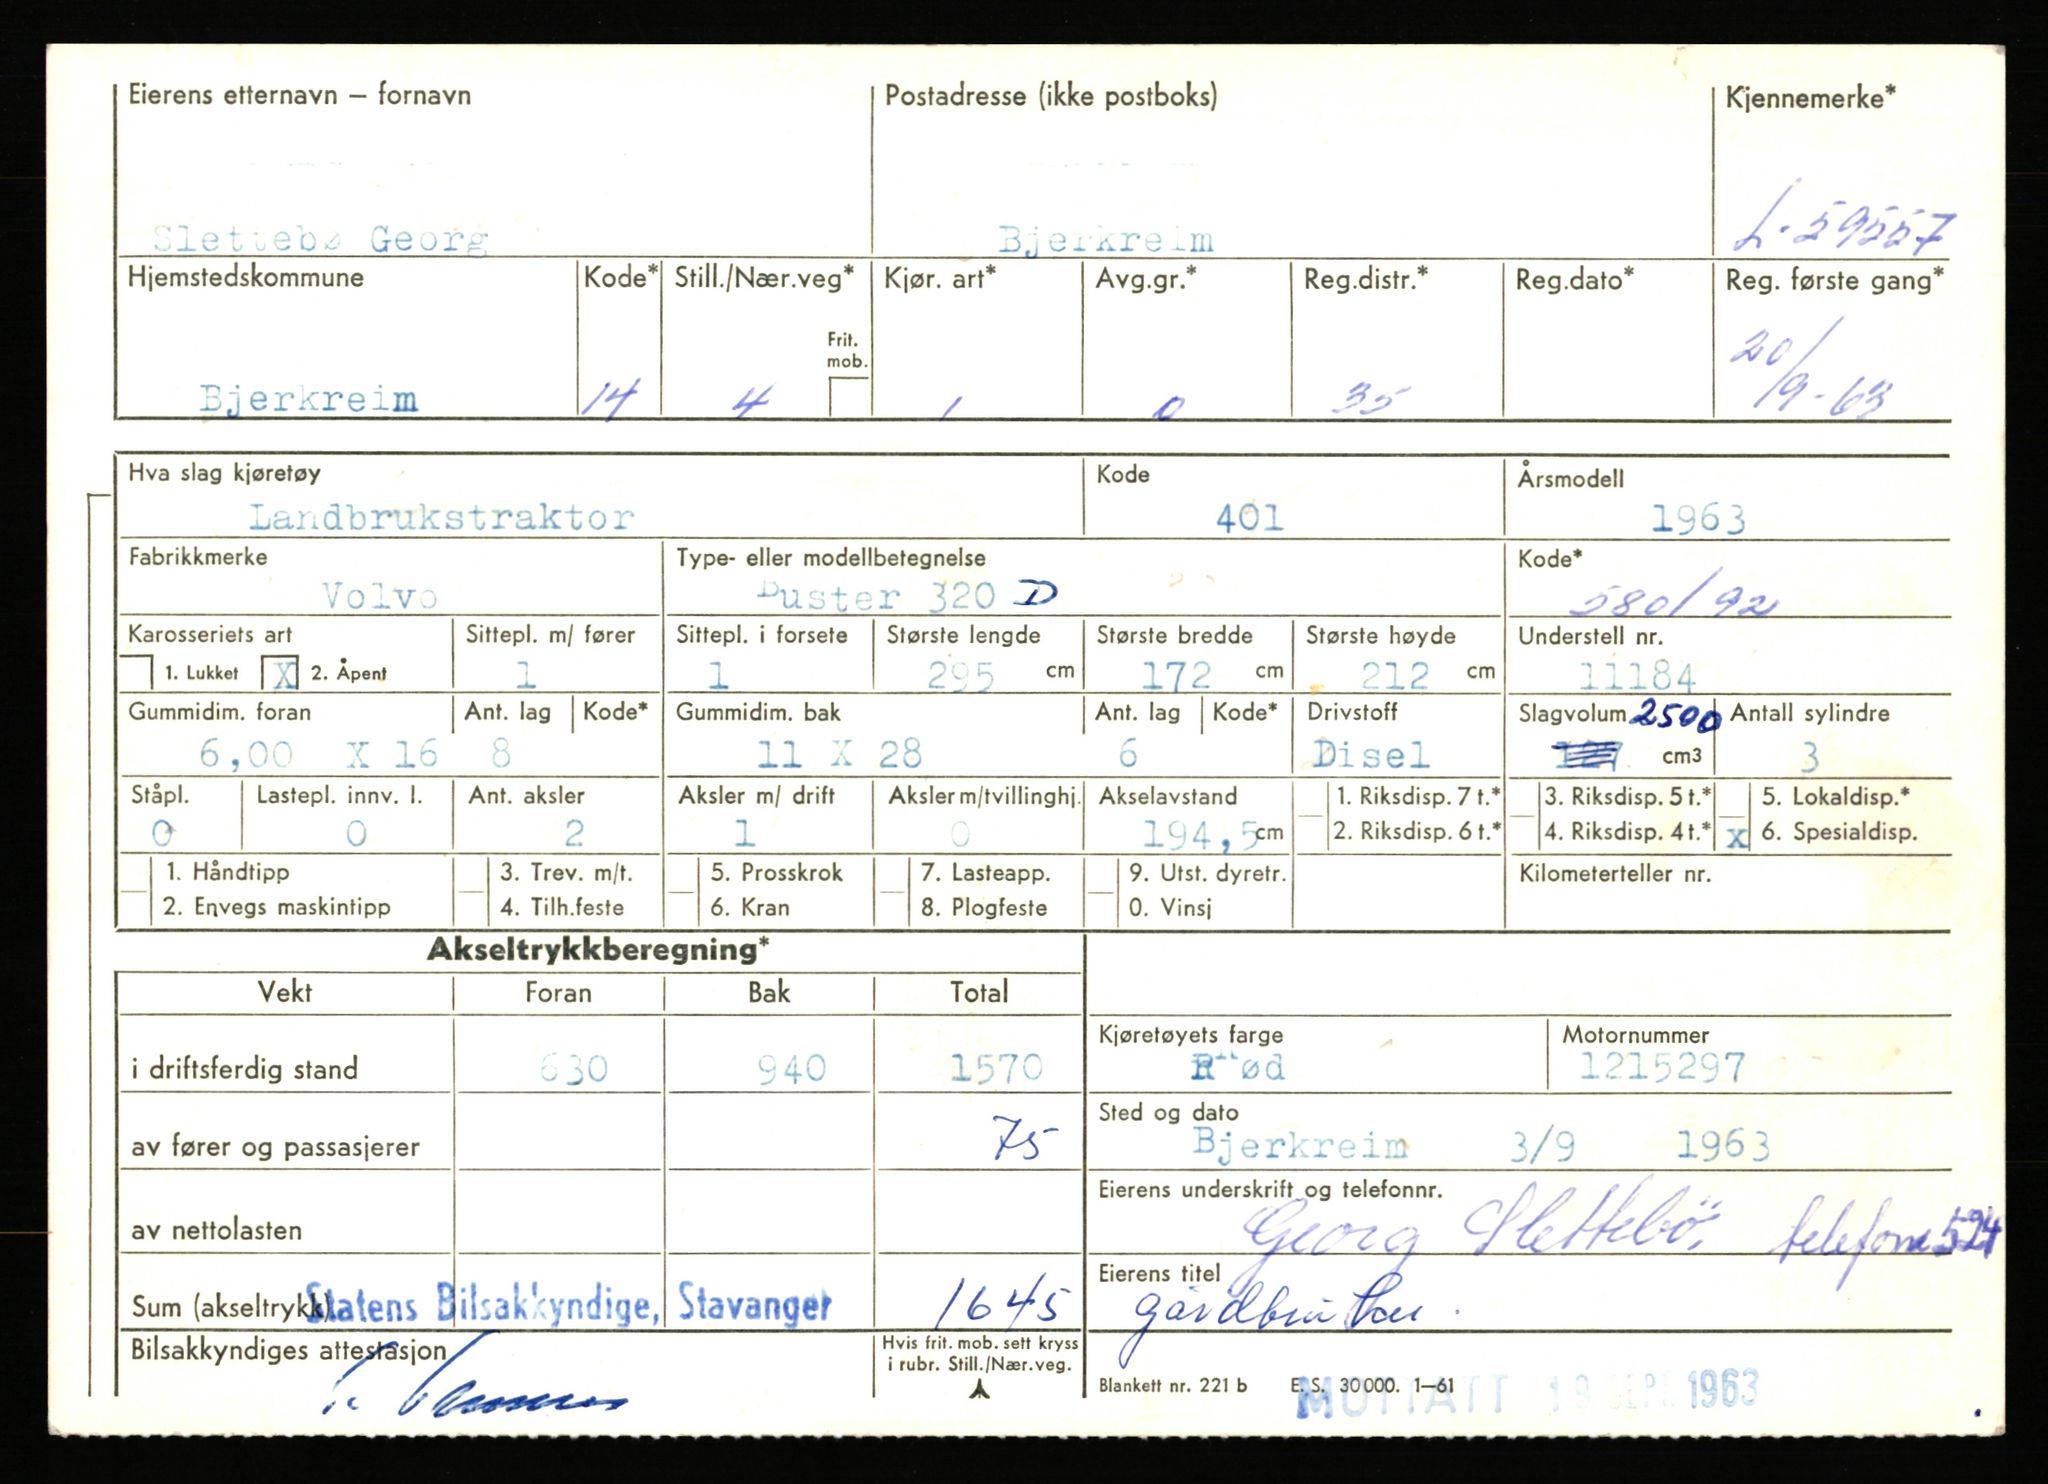 Eierens etternavn – fornavn Postadresse (ikke postboks) Kjennemerke*
Slettebø Georg Bjerkreim L-59557
Hjemstedskommune Kode* Still./Nær.veg* Kjør. art* Avg.gr.* Reg.distr.* Reg.dato* Reg. første gang*
Frit. mob.
Bjerkreim 14 4 1 0 35 20/9-63
Hva slag kjøretøy Kode Årsmodell
Landbrukstraktor 401 1963
Fabrikkmerke Type- eller modellbetegnelse Kode*
Volvo Buster 320 D 580/92
Karosseriets art Sittepl. m/ fører Sittepl. i forsete Største lengde Største bredde Største høyde Understell nr.
1. Lukket X 2. Åpent 1 1 295 cm 172 cm 212 cm 11184
Gummidim. foran Ant. lag Kode* Gummidim. bak Ant. lag Kode* Drivstoff Slagvolum 2500 Antall sylindre
6,00 X 16 8 11 X 28 6 Disel cm3 3
Ståpl. Lastepl. innv. l. Ant. aksler Aksler m/ drift Aksler m/tvillinghj. Akselavstand 1. Riksdisp. 7 t.* 3. Riksdisp. 5 t.* 5. Lokaldisp.*
0 0 2 1 0 194,5 cm 2. Riksdisp. 6 t.* 4. Riksdisp. 4 t.* x 6. Spesialdisp.
1. Håndtipp 3. Trev. m/t. 5. Prosskrok 7. Lasteapp. 9. Utst. dyretr. Kilometerteller nr.
2. Envegs maskintipp 4. Tilh.feste 6. Kran 8. Plogfeste 0. Vinsj
Akseltrykkberegning*
Vekt Foran Bak Total
Kjøretøyets farge Motornummer
i driftsferdig stand 630 940 1570 Rød 1215297
Sted og dato
av fører og passasjerer 75 Bjerkreim 3/9 1963
Eierens underskrift og telefonnr.
av nettolasten Georg Slettebö, telefon 524
Eierens titel
Sum (akseltrykk) Statens Bilsakkyndige, Stavanger 1645 gårdbruker.
Bilsakkyndiges attestasjon Hvis frit. mob. sett kryss
i rubr. Still./Nær.veg.
Blankett nr. 221 b E. S. 30 000. 1–61
MOTTATT 19 SEPT 1963